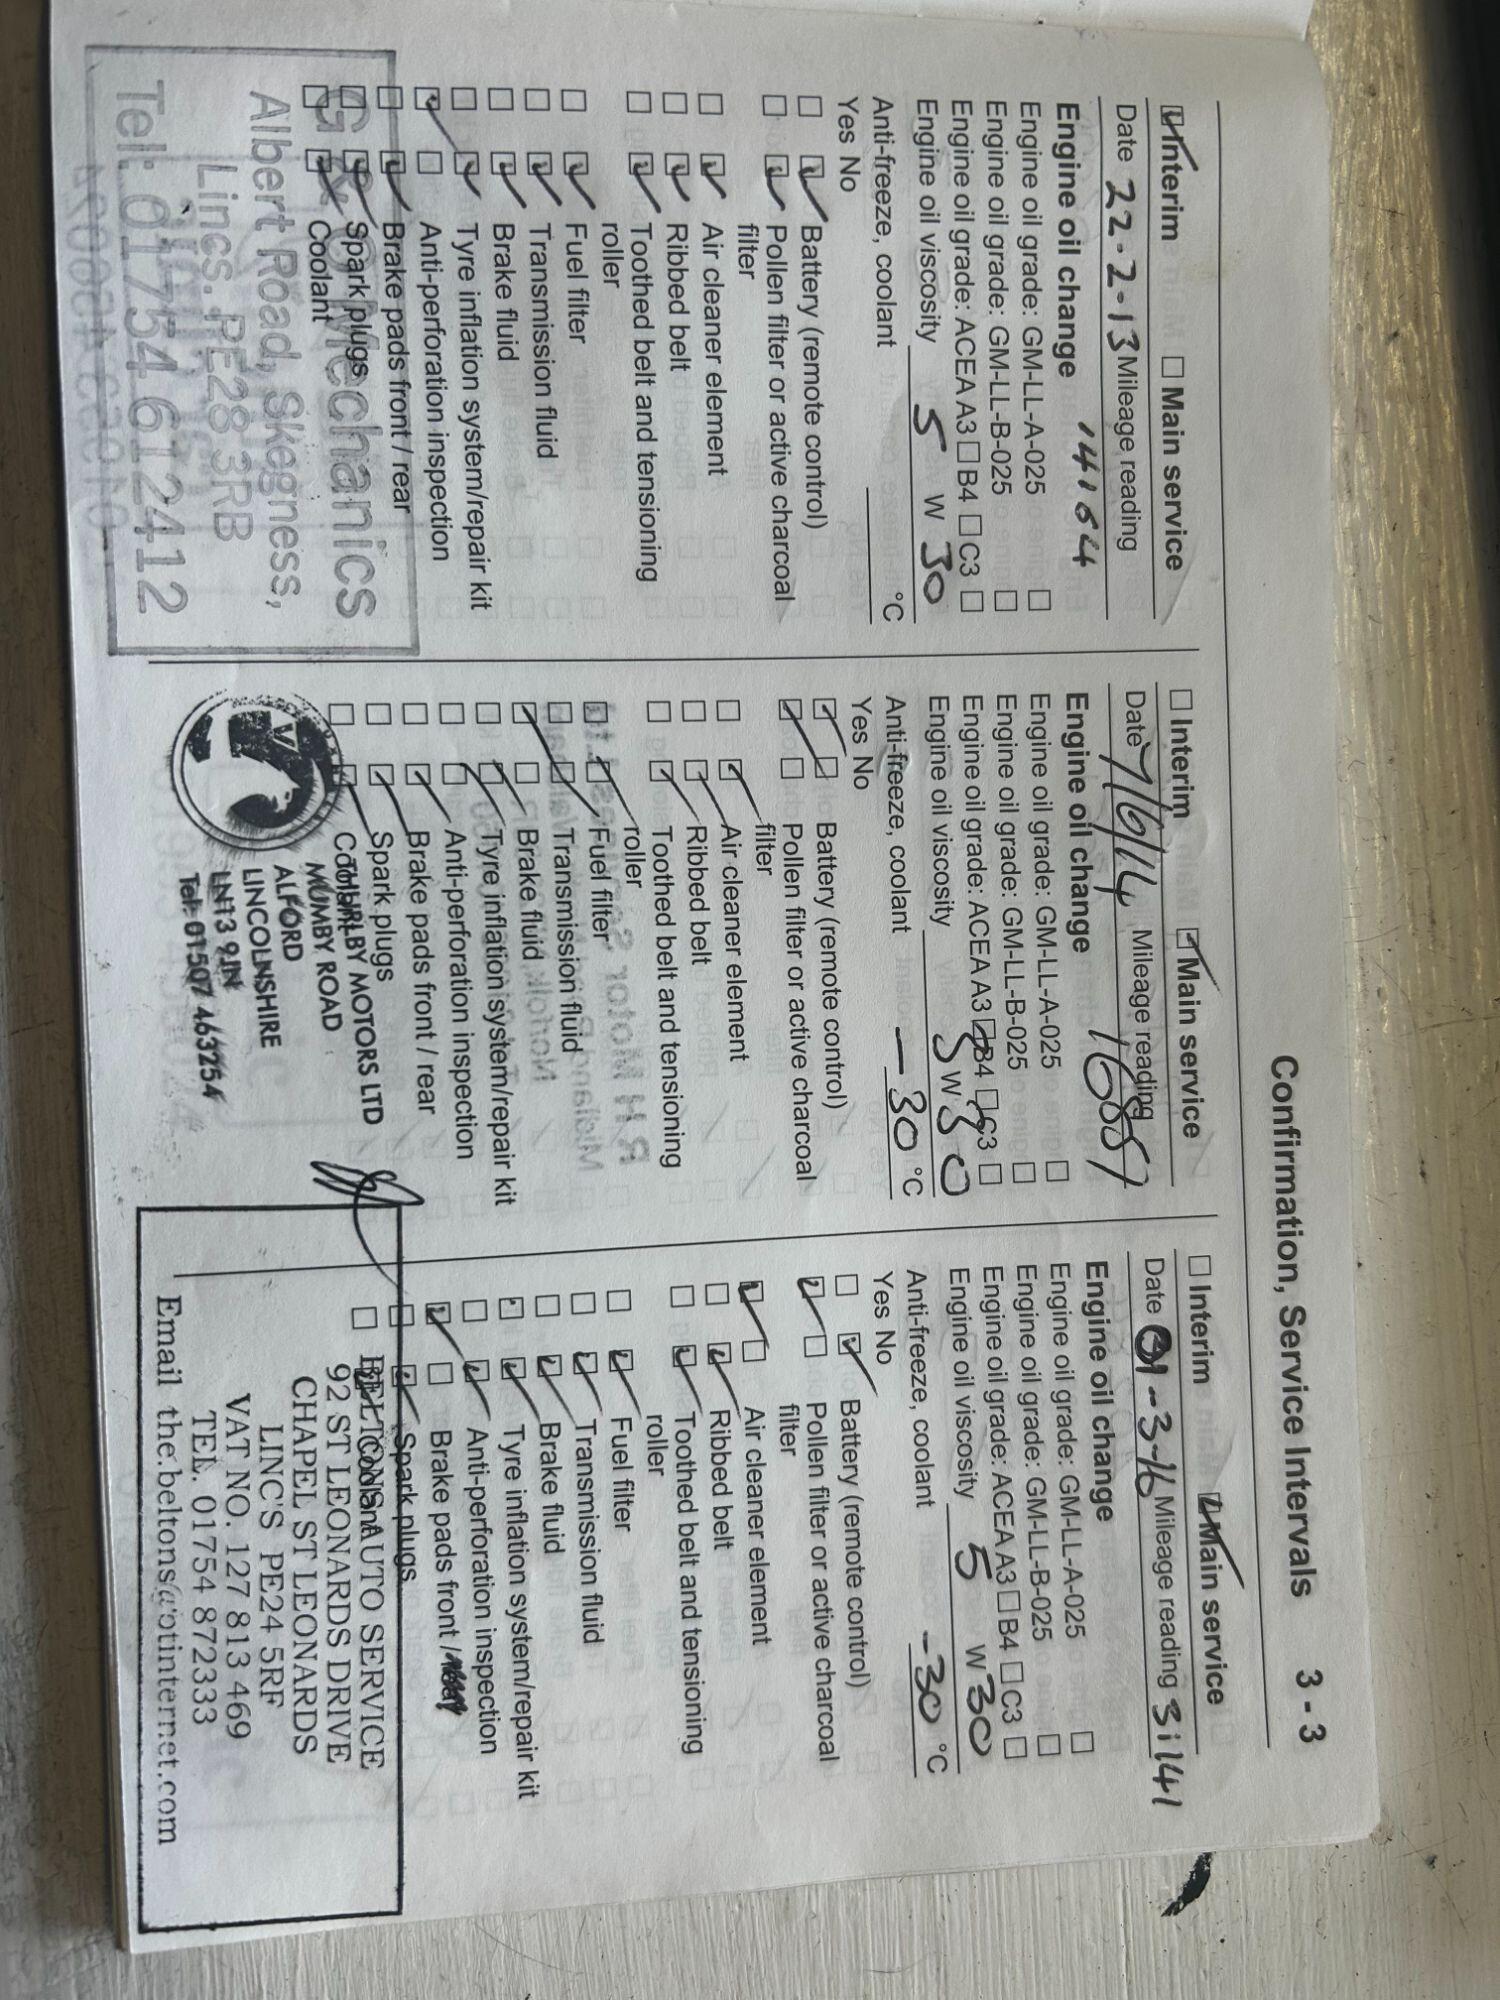 Confirmation, Service Intervals 3 - 3
Interim Main service
Date 22-2-13 Mileage reading
14164
Engine oil change
Engine oil grade: GM-LL-A-025
Engine oil grade: GM-LL-B-025
Engine oil grade: ACEA A3 B4 C3
Engine oil viscosity 5 W 30
Anti-freeze, coolant °C
Yes No
Battery (remote control)
Pollen filter or active charcoal
filter
Air cleaner element
Ribbed belt
Toothed belt and tensioning
roller
Fuel filter
Transmission fluid
Brake fluid
Tyre inflation system/repair kit
Anti-perforation inspection
Brake pads front / rear
Spark plugs
Coolant
Mechanics
Albert Road, Skegness,
Lincs. PE28 3RB
Tel: 01754 612412
Interim Main service
Date 7/6/14 Mileage reading
Engine oil change
Engine oil grade: GM-LL-A-025
Engine oil grade: GM-LL-B-025
Engine oil grade: ACEA A3 B4 C3
Engine oil viscosity 5 W 30
Anti-freeze, coolant -30 °C
Yes No
Battery (remote control)
Pollen filter or active charcoal
filter
Air cleaner element
Ribbed belt
Toothed belt and tensioning
roller
Fuel filter
Transmission fluid
Brake fluid
Tyre inflation system/repair kit
Anti-perforation inspection
Brake pads front / rear
Spark plugs
Coolant
THURLBY MOTORS LTD
MUMBY ROAD
ALFORD
LINCOLNSHIRE
LN13 9JN
Tel: 01507 463254
Interim Main service
Date 01-3-16 Mileage reading 31141
Engine oil change
Engine oil grade: GM-LL-A-025
Engine oil grade: GM-LL-B-025
Engine oil grade: ACEA A3 B4 C3
Engine oil viscosity 5 W 30
Anti-freeze, coolant -30 °C
Yes No
Battery (remote control)
Pollen filter or active charcoal
filter
Air cleaner element
Ribbed belt
Toothed belt and tensioning
roller
Fuel filter
Transmission fluid
Brake fluid
Tyre inflation system/repair kit
Anti-perforation inspection
Brake pads front /
Spark plugs
Coolant
BELTONS AUTO SERVICE
92 ST LEONARDS DRIVE
CHAPEL ST LEONARDS
LINC'S PE24 5RF
VAT NO. 127 813 469
TEL. 01754 872333
Email the.beltons@btinternet.com